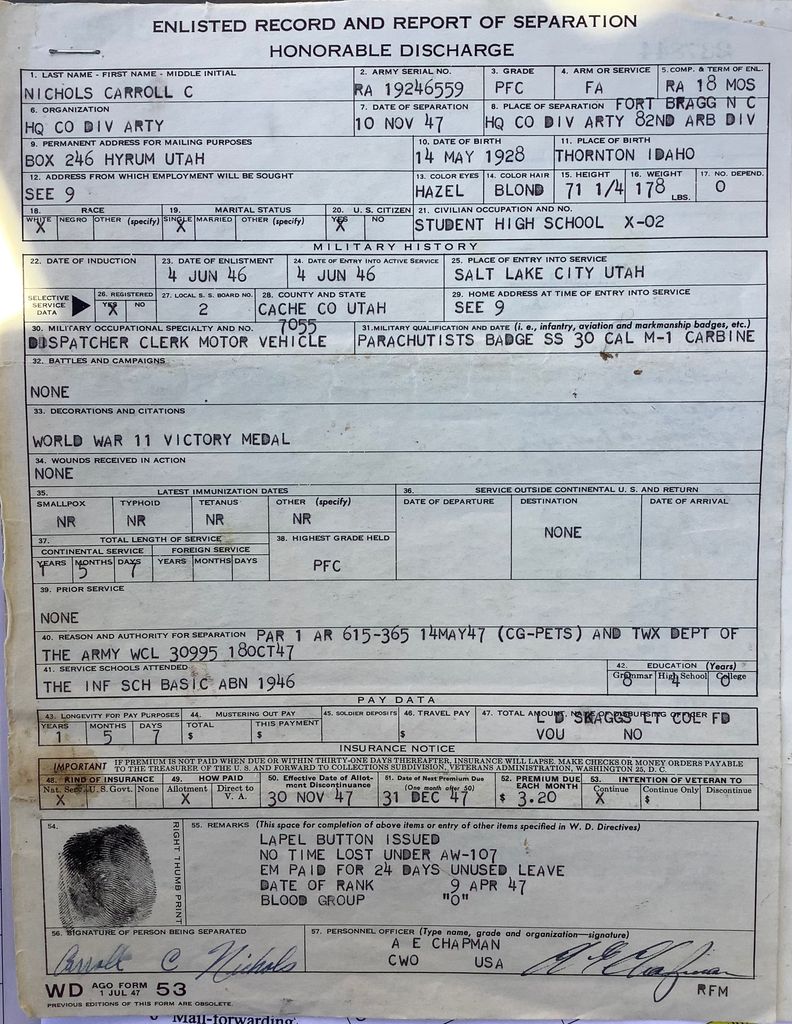 ENLISTED RECORD AND REPORT OF SEPARATION
HONORABLE DISCHARGE
1. LAST NAME - FIRST NAME - MIDDLE INITIAL
NICHOLS CARROLL C
2. ARMY SERIAL NO.
RA 19246559
3. GRADE
PFC
4. ARM OR SERVICE
FA
5. COMP. & TERM OF ENL.
RA 18 MOS
6. ORGANIZATION
HQ CO DIV ARTY
7. DATE OF SEPARATION
10 NOV 47
8. PLACE OF SEPARATION FORT BRAGG N C
HQ CO DIV ARTY 82ND ARB DIV
9. PERMANENT ADDRESS FOR MAILING PURPOSES
BOX 246 HYRUM UTAH
10. DATE OF BIRTH
14 MAY 1928
11. PLACE OF BIRTH
THORNTON IDAHO
12. ADDRESS FROM WHICH EMPLOYMENT WILL BE SOUGHT
SEE 9
13. COLOR EYES
HAZEL
14. COLOR HAIR
BLOND
15. HEIGHT
71 1/4
16. WEIGHT
178 LBS.
17. NO. DEPEND.
0
18. RACE
WHITE NEGRO OTHER (specify)
X
19. MARITAL STATUS
SINGLE MARRIED OTHER (specify)
X
20. U. S. CITIZEN
YES NO
X
21. CIVILIAN OCCUPATION AND NO.
STUDENT HIGH SCHOOL X-02
MILITARY HISTORY
22. DATE OF INDUCTION
23. DATE OF ENLISTMENT
4 JUN 46
24. DATE OF ENTRY INTO ACTIVE SERVICE
4 JUN 46
25. PLACE OF ENTRY INTO SERVICE
SALT LAKE CITY UTAH
SELECTIVE SERVICE DATA
26. REGISTERED
YES NO
X
27. LOCAL S. S. BOARD NO.
2
28. COUNTY AND STATE
CACHE CO UTAH
29. HOME ADDRESS AT TIME OF ENTRY INTO SERVICE
SEE 9
30. MILITARY OCCUPATIONAL SPECIALTY AND NO. 7055
DISPATCHER CLERK MOTOR VEHICLE
31. MILITARY QUALIFICATION AND DATE (i. e., infantry, aviation and markmanship badges, etc.)
PARACHUTISTS BADGE SS 30 CAL M-1 CARBINE
32. BATTLES AND CAMPAIGNS
NONE
33. DECORATIONS AND CITATIONS
WORLD WAR 11 VICTORY MEDAL
34. WOUNDS RECEIVED IN ACTION
NONE
35. LATEST IMMUNIZATION DATES
SMALLPOX TYPHOID TETANUS OTHER (specify)
NR NR NR NR
36. SERVICE OUTSIDE CONTINENTAL U. S. AND RETURN
DATE OF DEPARTURE DESTINATION DATE OF ARRIVAL
NONE
37. TOTAL LENGTH OF SERVICE
CONTINENTAL SERVICE FOREIGN SERVICE
YEARS MONTHS DAYS YEARS MONTHS DAYS
1 5 7
38. HIGHEST GRADE HELD
PFC
39. PRIOR SERVICE
NONE
40. REASON AND AUTHORITY FOR SEPARATION PAR 1 AR 615-365 14MAY47 (CG-PETS) AND TWX DEPT OF
THE ARMY WCL 30995 18OCT47
41. SERVICE SCHOOLS ATTENDED
THE INF SCH BASIC ABN 1946
42. EDUCATION (Years)
Grammar High School College
8 4 0
PAY DATA
43. LONGEVITY FOR PAY PURPOSES
YEARS MONTHS DAYS
1 5 7
44. MUSTERING OUT PAY
TOTAL THIS PAYMENT
$ $
45. SOLDIER DEPOSITS
$
46. TRAVEL PAY
$
47. TOTAL AMOUNT, NAME OF DISBURSING OFFICER
L D SKAGGS LT COL FD
VOU NO
INSURANCE NOTICE
IMPORTANT IF PREMIUM IS NOT PAID WHEN DUE OR WITHIN THIRTY-ONE DAYS THEREAFTER, INSURANCE WILL LAPSE. MAKE CHECKS OR MONEY ORDERS PAYABLE
TO THE TREASURER OF THE U. S. AND FORWARD TO COLLECTIONS SUBDIVISION, VETERANS ADMINISTRATION, WASHINGTON 25, D. C.
48. KIND OF INSURANCE
Nat. Serv. U. S. Govt. None
X
49. HOW PAID
Allotment Direct to V. A.
X
50. Effective Date of Allotment Discontinuance
30 NOV 47
51. Date of Next Premium Due (One month after 50)
31 DEC 47
52. PREMIUM DUE EACH MONTH
$ 3.20
53. INTENTION OF VETERAN TO
Continue Continue Only Discontinue
X $
54.
RIGHT THUMB PRINT
55. REMARKS (This space for completion of above items or entry of other items specified in W. D. Directives)
LAPEL BUTTON ISSUED
NO TIME LOST UNDER AW-107
EM PAID FOR 24 DAYS UNUSED LEAVE
DATE OF RANK 9 APR 47
BLOOD GROUP "O"
56. SIGNATURE OF PERSON BEING SEPARATED
Carroll C Nichols
57. PERSONNEL OFFICER (Type name, grade and organization—signature)
A E CHAPMAN
CWO USA
A E Chapman
WD AGO FORM 53
1 JUL 47
RFM
PREVIOUS EDITIONS OF THIS FORM ARE OBSOLETE.
Mail-forwarding